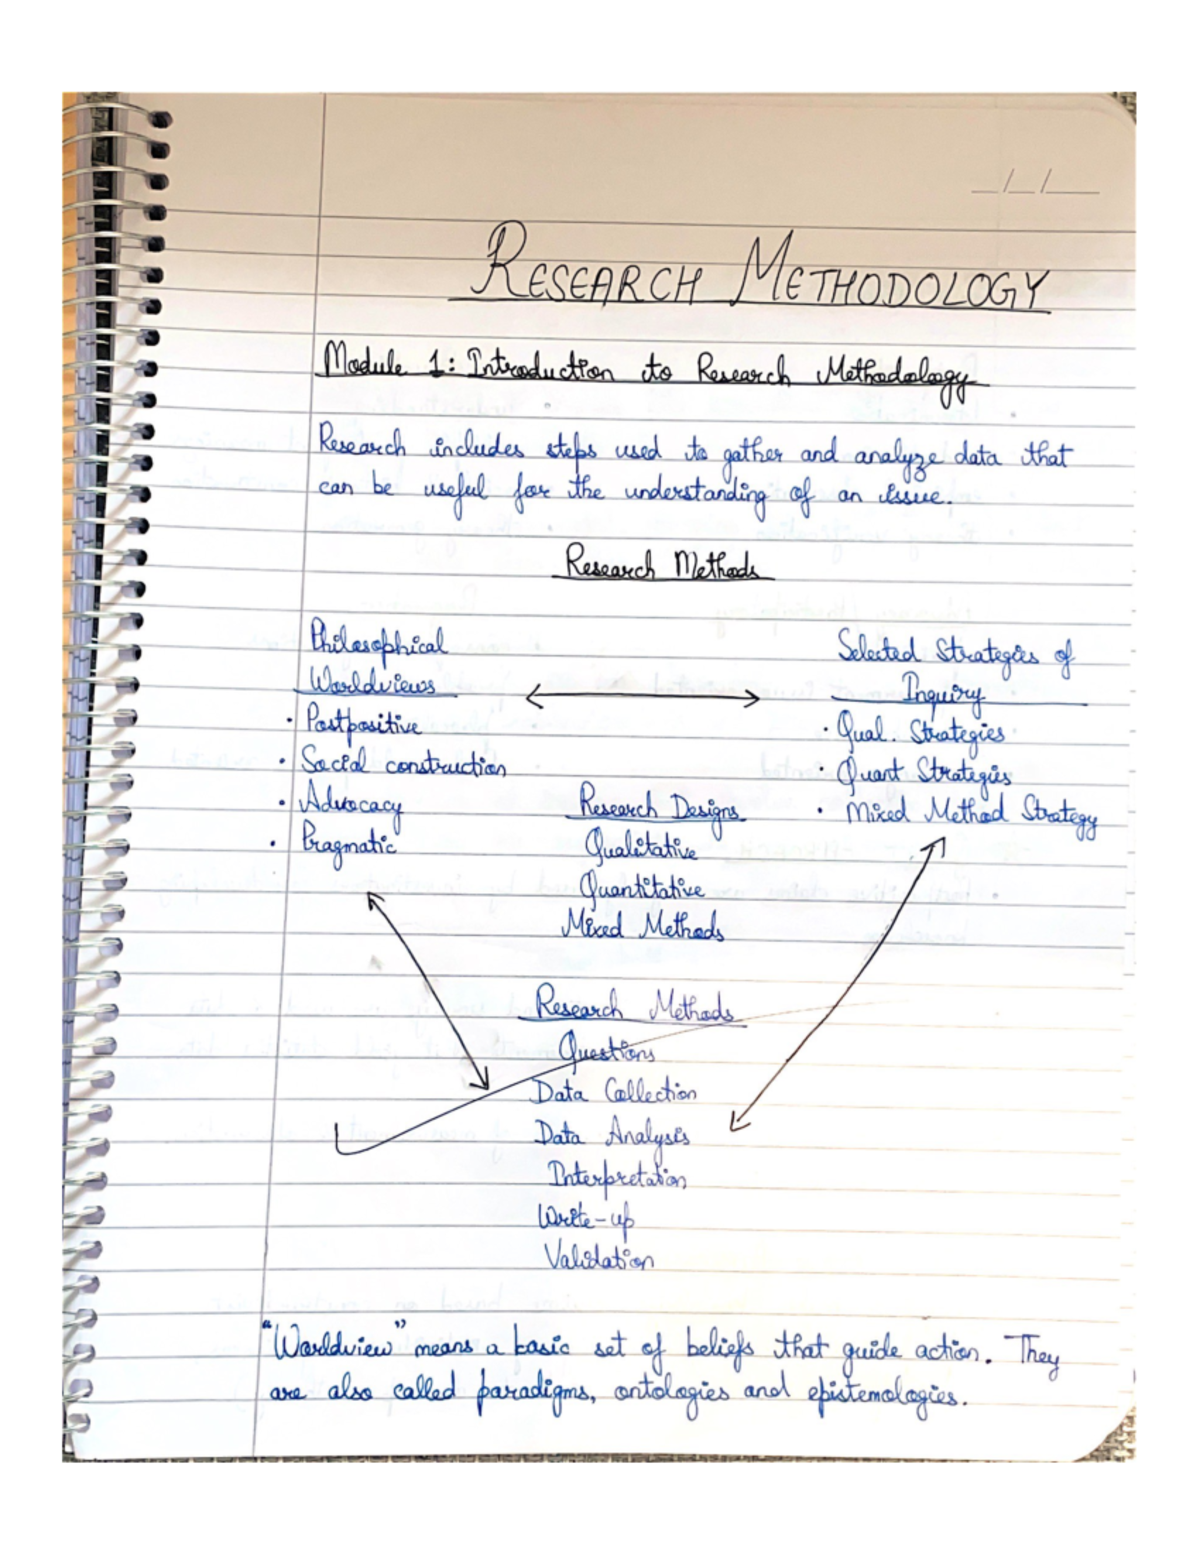 _/_/__
RESEARCH METHODOLOGY
Module 1: Introduction to Research Methodology
Research includes steps used to gather and analyze data that
can be useful for the understanding of an issue.
Research Methods
Philosophical
Worldviews
• Postpositive
• Social construction
• Advocacy
• Pragmatic
Selected Strategies of
Inquiry
• Qual. Strategies
• Quant Strategies
• Mixed Method Strategy
Research Designs
Qualitative
Quantitative
Mixed Methods
Research Methods
Questions
Data Collection
Data Analysis
Interpretation
Write-up
Validation
"Worldview" means a basic set of beliefs that guide action. They
are also called paradigms, ontologies and epistemologies.